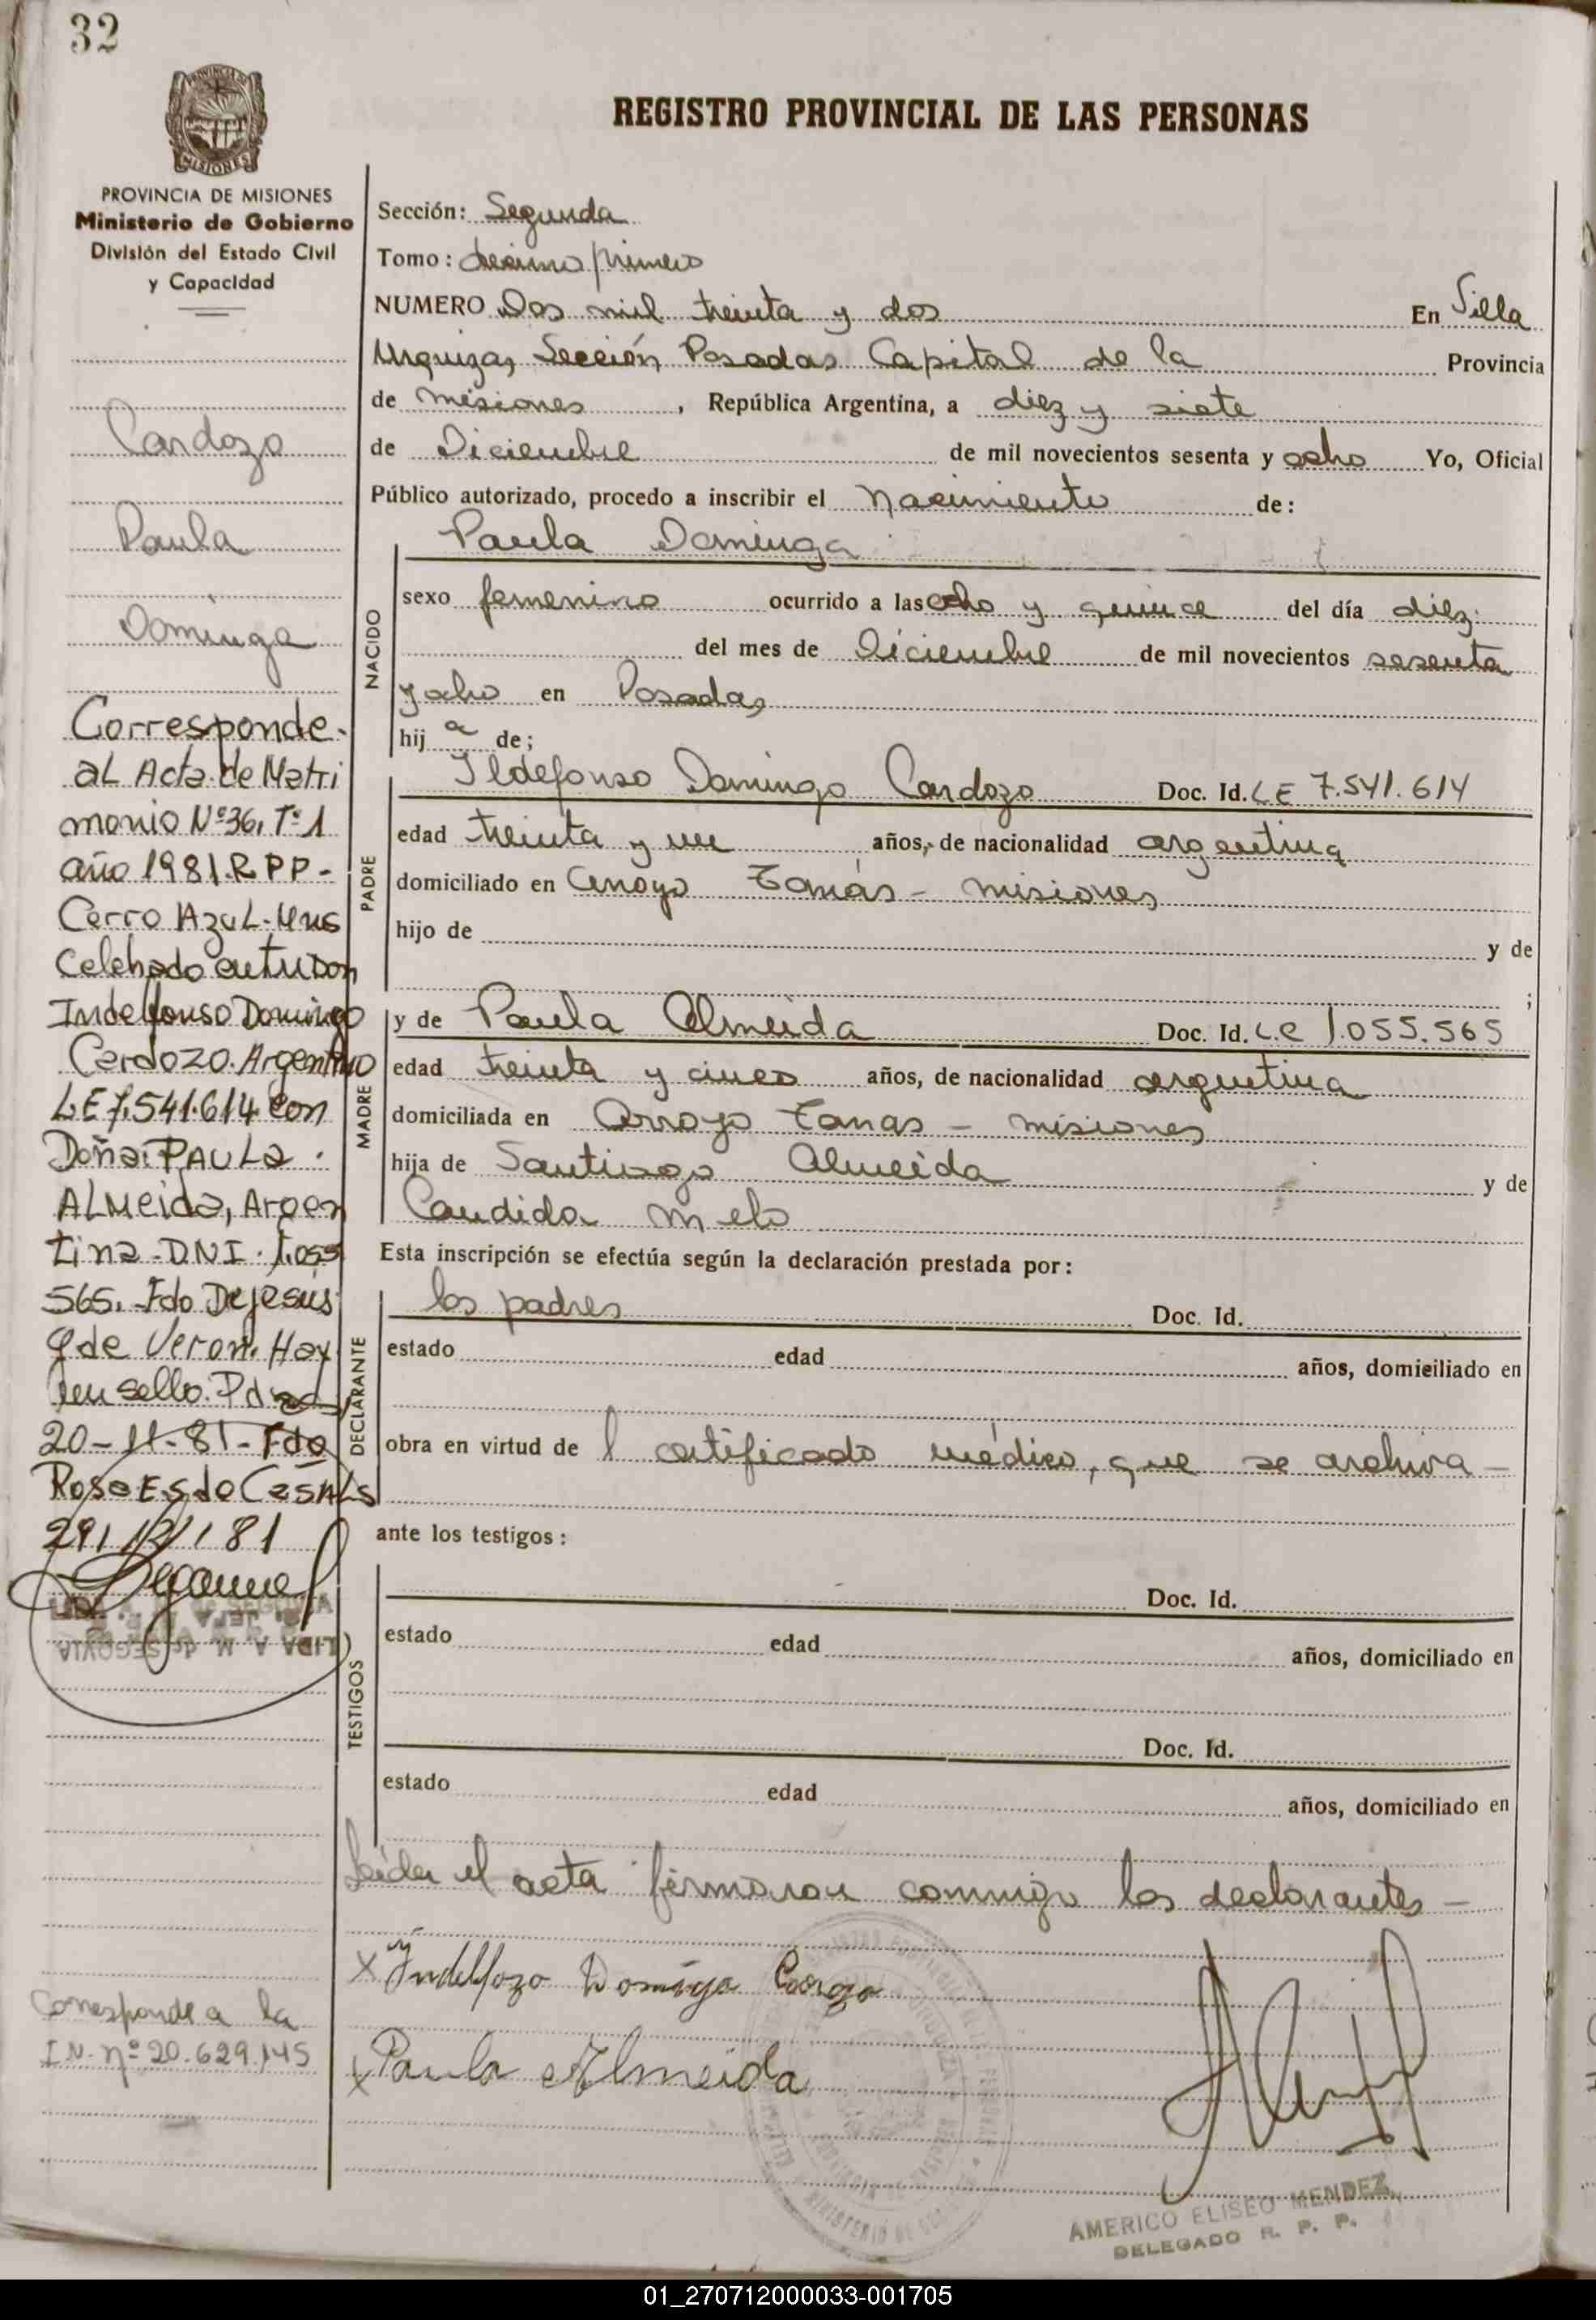 32
PROVINCIA DE MISIONES
Ministerio de Gobierno
División del Estado Civil
y Capacidad
REGISTRO PROVINCIAL DE LAS PERSONAS
Sección: Segunda
Tomo: décimo primero
NUMERO Dos mil treinta y dos En Villa
Urquiza, Sección Posadas Capital de la Provincia
de Misiones, República Argentina, a diez y siete
de Diciembre de mil novecientos sesenta y ocho Yo, Oficial
Público autorizado, procedo a inscribir el Nacimiento de:
Paula Dominga
NACIDO
sexo femenino ocurrido a las ocho y quince del día diez
del mes de Diciembre de mil novecientos sesenta
y ocho en Posadas
hij a de;
PADRE
Ildefonso Domingo Cardozo Doc. Id. LE 7.541.614
edad treinta y un años, de nacionalidad argentina
domiciliado en Arroyo Tomás - Misiones
hijo de y de
;
MADRE
y de Paula Almeida Doc. Id. L.C 1.055.565
edad treinta y cinco años, de nacionalidad argentina
domiciliada en Arroyo Tomas - Misiones
hija de Santiago Almeida y de
Candida Melo
Esta inscripción se efectúa según la declaración prestada por:
DECLARANTE
los padres Doc. Id.
estado edad años, domiciliado en
obra en virtud de l certificado médico, que se archiva -
ante los testigos:
TESTIGOS
Doc. Id.
estado edad años, domiciliado en
Doc. Id.
estado edad años, domiciliado en
Leída el acta firmaron conmigo los declarantes -
x Indelfozo Domingo
x Paula Almeida
AMERICO ELISEO MENDEZ
DELEGADO R. P. P.
Cardozo
Paula
Dominga
Corresponde
al Acta de Matri
monio Nº 36, Tº 1
año 1981. R P P -
Cerro Azul - Mns
Celebrado entre Don
Indelfonso Domingo
Cardozo. Argentino
LE 7.541.614 con
Doña: PAULA
ALMEIDA, Argen
tina - DNI 1.055
565. Fdo Dejesús
de Veron. Hay
un sello. Pdas
20-11-81 - Fdo
Rosa E. S de
29/12/81
LIDA A. M. de SEGOVIA
Corresponde a la
I.N. nº 20.629.145
01_270712000033-001705